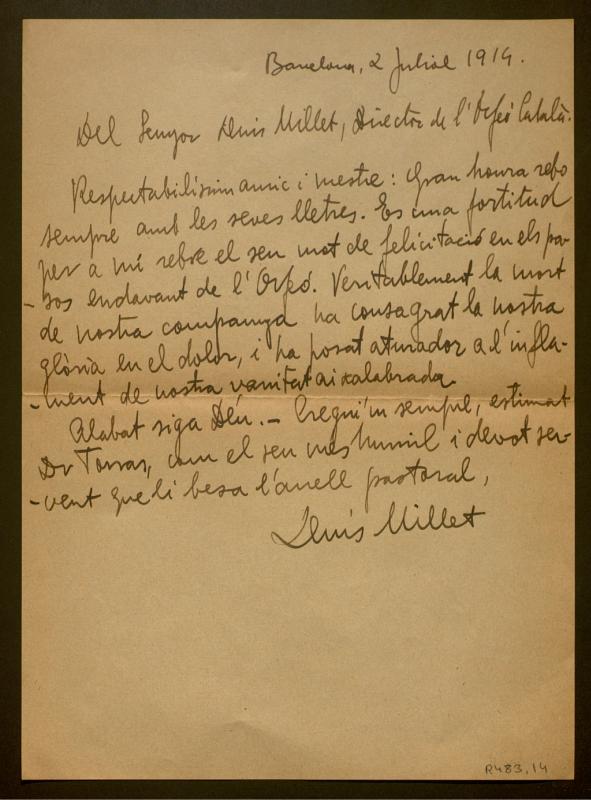 Barcelona, 2 Juliol 1914.
Del Senyor Lluis Millet, Director de l'Orfeó Català.
Respectabilissim amic i mestre: Gran honra rebo
sempre amb les seves lletres. Es una fortitud
per a mi rebre el seu mot de felicitació en els pa-
-sos endavant de l'Orfeó. Veritablement la mort
de nostra companya ha consagrat la nostra
glòria en el dolor, i ha posat aturador a l'infla-
-ment de nostra vanitat aixalabrada.
Alabat siga Déu. — Cregui'm sempre, estimat
Dr Torras, com el seu mes humil i devot ser-
-vent que li besa l'anell pastoral,
Lluis Millet
R483,14